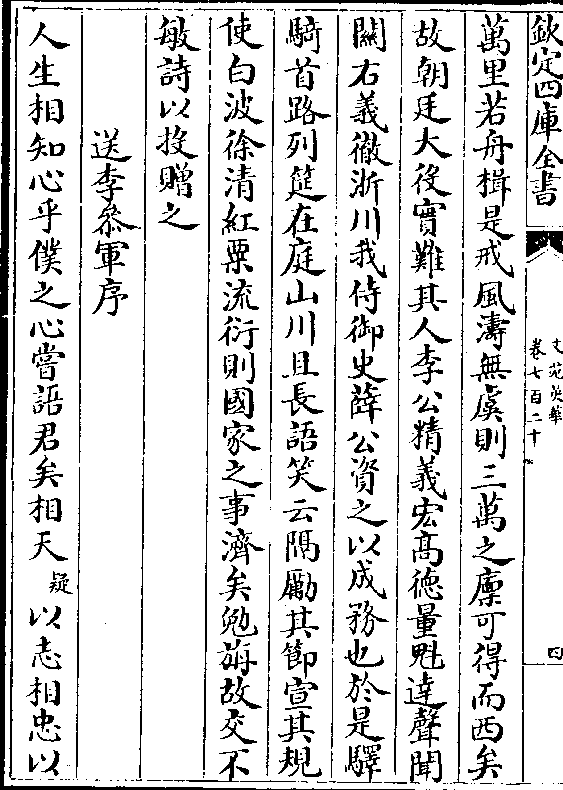 欽定四庫全書
文苑英華
卷七百二十
四
萬里若舟楫是戒風濤無虞則三萬之廩可得而西矣
故朝廷大役實難其人李公精義宏髙徳量魁達聲聞
關右義徹浙川我侍御史薛公資之以成務也於是驛
騎首路列筵在庭山川且長語笑云隅勵其節宣其規
使白波徐清紅粟流衍則國家之事濟矣勉旃故交不
敏詩以投贈之
送李叅軍序
人生相知心乎僕之心嘗語君矣相天疑以志相忠以